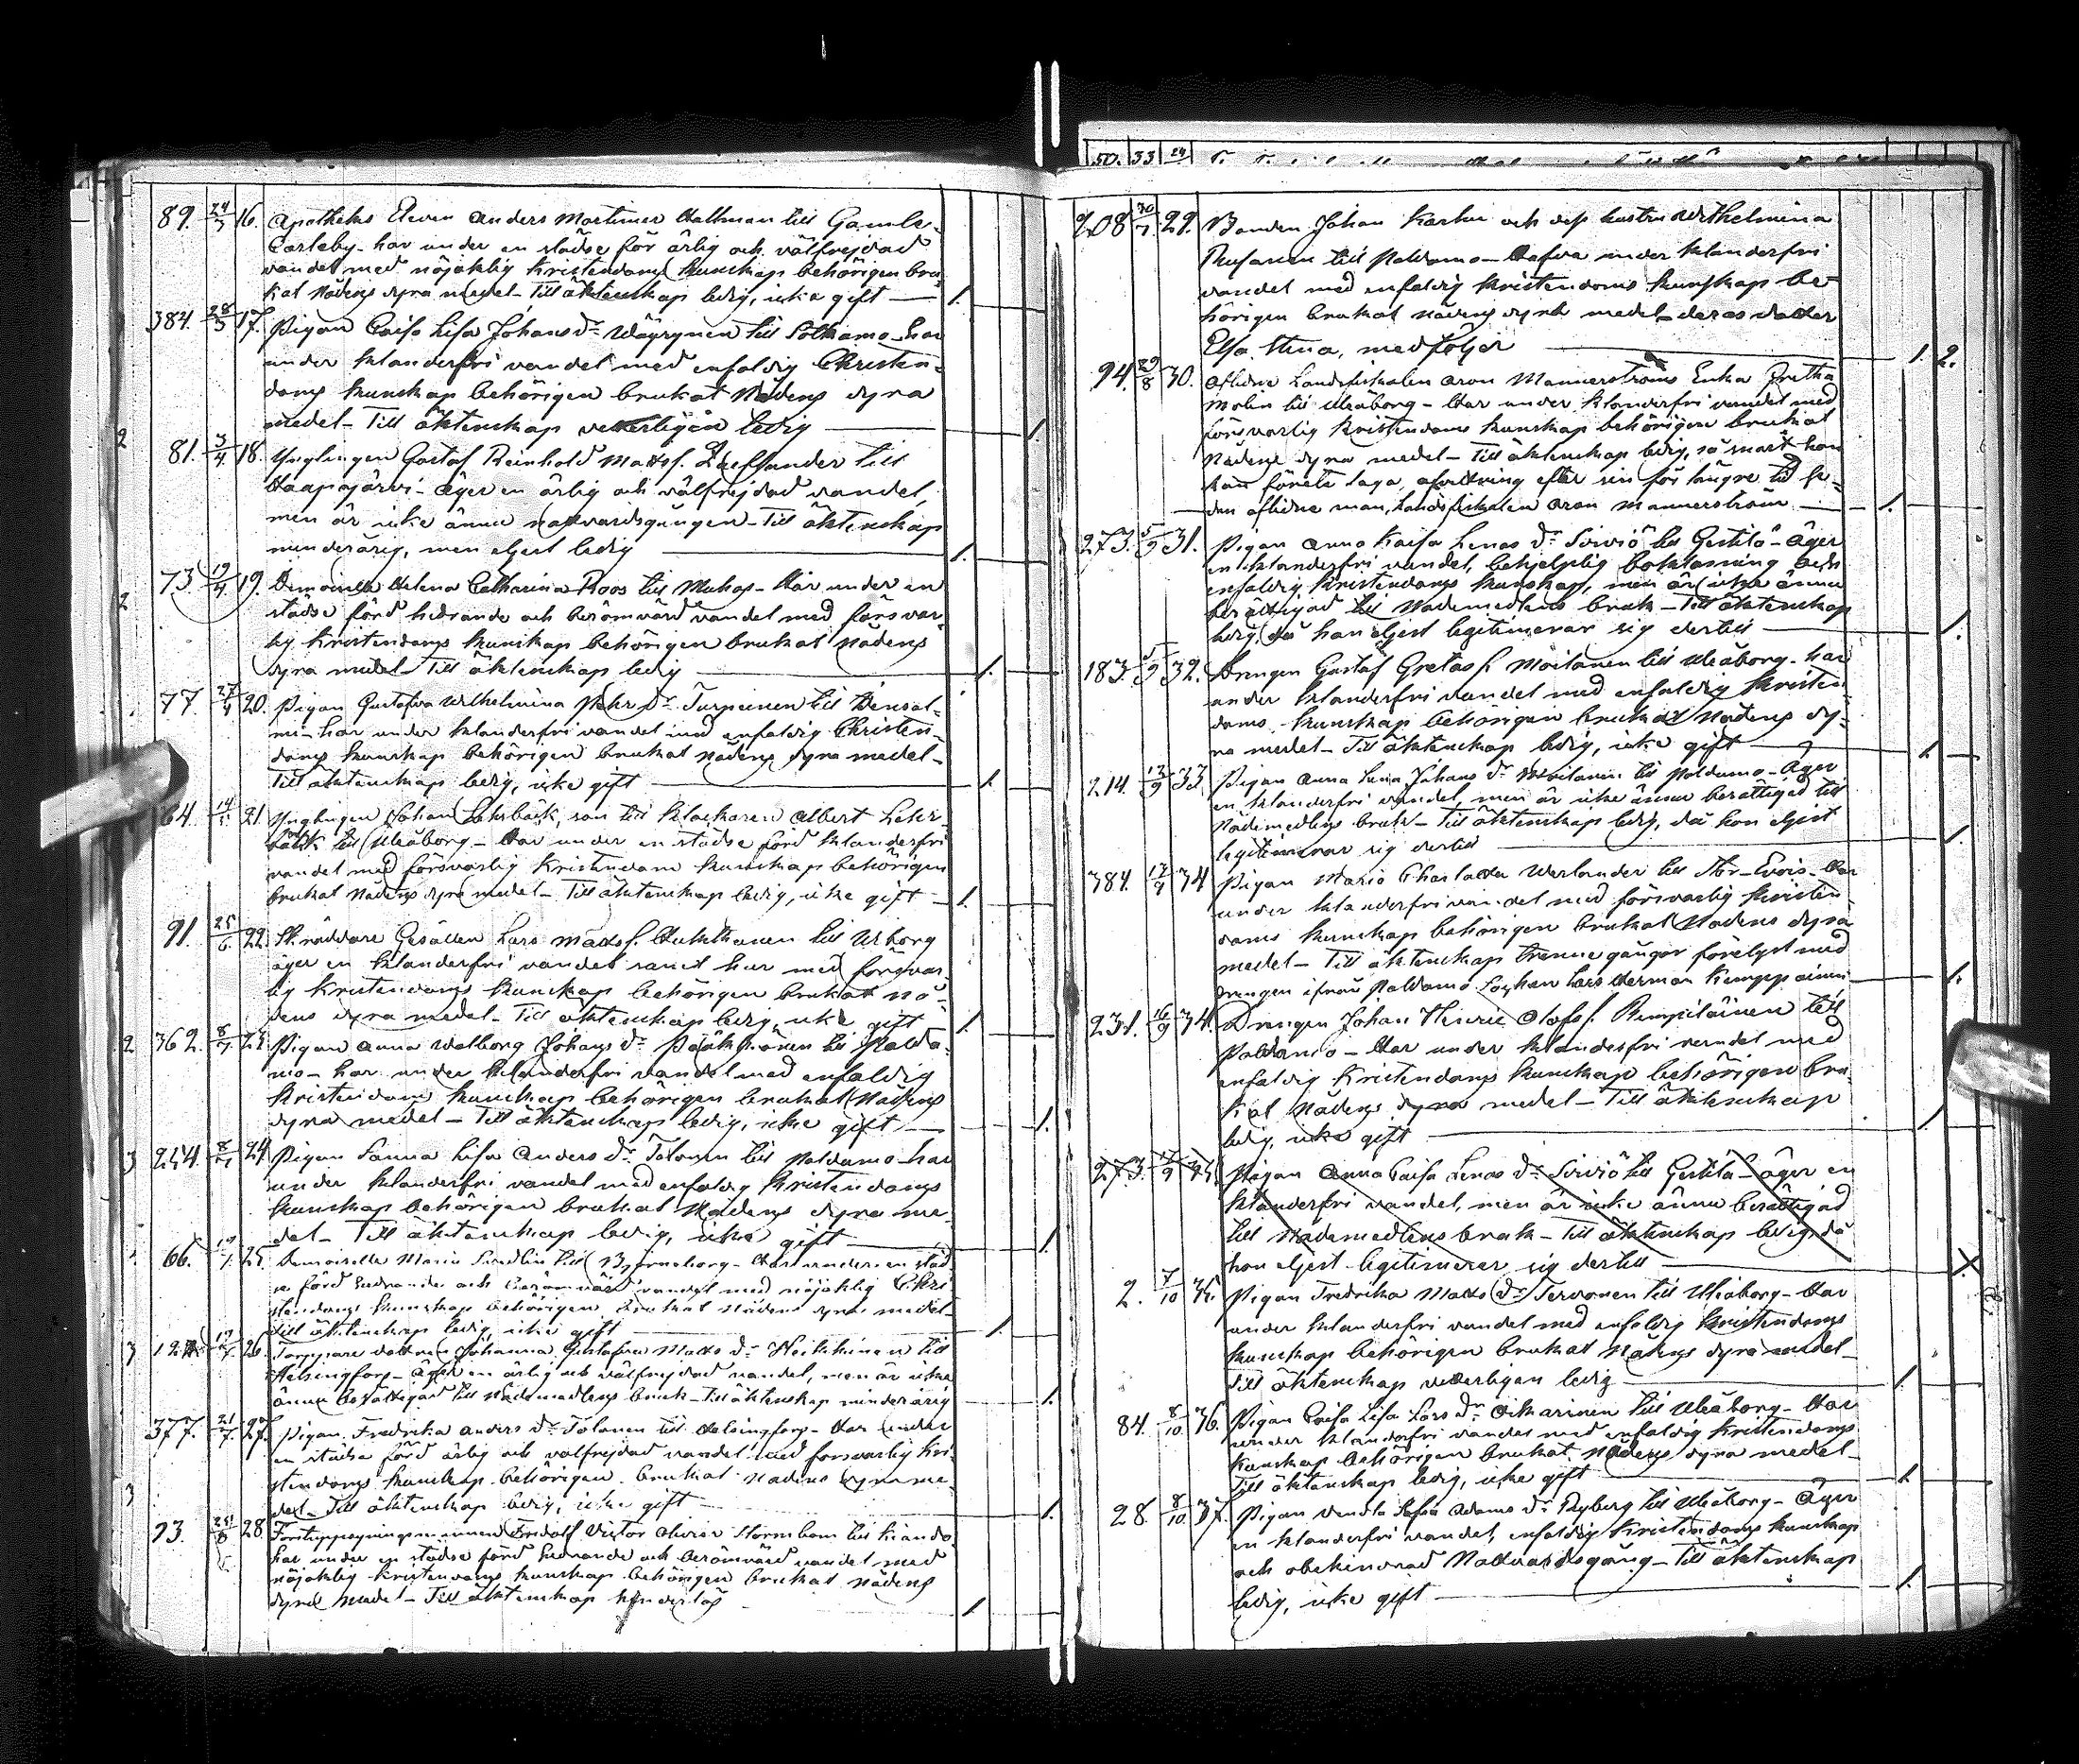 89. 24/3 16. Apotheks Eleven Anders Mortimer Hallman till Gamle-
Carleby - har under en städse för ärlig och välfrejdad
vandel med nöjaktig Kristendoms kunskap behörigen bru-
kat Nådens dyra medel - Till äktenskap ledig, icke gift — 1.
384. 28/3 17. Pigan Caisa Lisa Johans dr Wäyrynen till Sotkamo - har
under klanderfri vandel med enfaldig Christen-
doms kunskap behörigen brukat Nådens dyra
medel - Till äktenskap veterligen ledig — 1.
2 81. 3/4 18. Ynglingen Gustaf Reinhold Matts s. till
Haapajärvi - äger en ärlig och välfrejdad vandel,
men är icke ännu nattvardsgången - Till äktenskap
minderårig, men eljest ledig — 1.
2 73. 19/4 19. Demoiselle Helena Catharina Roos till Muhos - Har under en
städse förd hedrande och berömvärd vandel med försvar-
lig Kristendoms kunskap behörigen brukat Nådens
dyra medel - Till äktenskap ledig — 1.
77. 27/4 20. Pigan Gustafva Wilhelmina Pehrs dr Turpeinen till
- har under klanderfri vandel med enfaldig Christen-
doms kunskap behörigen brukat nådens dyra medel -
Till äktenskap ledig, icke gift — 1.
64. 21. Ynglingen Johan Lehrbäck, son till Klockaren Albert Lehr-
bäck till Uleåborg - Har under en städse förd klanderfri
vandel med försvarlig Kristendoms kunskap behörigen
brukat Nådens dyra medel - Till äktenskap ledig, icke gift — 1.
91. 25/6 22. Skräddare Gesällen Lars Matts s. till Wiborg
äger en klanderfri vandel samt har med försvar-
lig Kristendoms kunskap behörigen brukat Nå-
dens dyra medel - Till äktenskap ledig, icke gift — 1.
2 362. 8/7 23. Pigan Anna Walborg Johans dr Pääkkönen till Palda-
mo - har under klanderfri vandel med enfaldig
Kristendoms kunskap behörigen brukat Nådens
dyra medel - Till äktenskap ledig, icke gift — 1.
3 254. 8/7 24. Pigan Sanna Lisa Anders dr Tolonen till Paldamo - har
under klanderfri vandel med enfaldig Kristendoms
kunskap behörigen brukat Nådens dyra me-
del - Till äktenskap ledig, icke gift — 1.
66. 25. Demoiselle Maria Sundlin till Björneborg - Har under en städ-
se förd hedrande och berömvärd vandel med nöjaktig Chri-
stendoms kunskap behörigen brukat Nådens dyra medel -
till äktenskap ledig, icke gift — 1.
3 26. Torppare dottren Johanna Gustafva Matts dr Heikkinen till
Helsingfors - Äger en ärlig och välfrejdad vandel, men är icke
ännu berättigad till Nådemedlens bruk - Till äktenskap minderårig 1.
377. 21/7 27. Pigan Fredrika Anders dr Tolonen till Helsingfors - Har under
en städse förd ärlig och välfrejdad vandel med försvarlig Kri-
stendoms kunskap behörigen brukat Nådens dyra me-
3 del - Till äktenskap ledig, icke gift — 1.
93. 28. Forstuppsyningsmannen Fridolf Victor Olivier Stormbom till Kiando
har under en städse förd hedrande och berömvärd vandel med
nöjaktig Kristendoms kunskap behörigen brukat nådens
dyra medel - Till äktenskap hinderlös — 1.
50. 33 24
208 30/7 29. Bonden Johan Karhu och dess hustru Wilhelmina
till Paldamo - Hafva under klanderfri
vandel med enfaldig Kristendoms kunskap be-
hörigen brukat nådens dyra medel - deras dotter
Elsa Stina, medföljer — 1. 2.
94. 29/8 30. Aflidne Landsfiskalen Aron Mannerströms Enka Gretha
Molin till Uleåborg - Har under klanderfri vandel med
försvarlig Kristendoms kunskap behörigen brukat
Nådens dyra medel - Till äktenskap ledig, så snart hon
kan förete laga afvittring efter sin för längre tid se-
dan aflidne man, Landsfiskalen Aron Mannerström — 1.
273. 5/9 31. Pigan Anna Kaisa Lenas dr Sirviö till Gestilä - Äger
en klanderfri vandel, behjelplig bokläsning och
enfaldig Kristendoms kunskap, men är icke ännu
berättigad till Nådemedlens bruk - Till äktenskap
ledig, då hon eljest legitimerar sig dertill — 1.
183. 5/9 32. Drengen Gustaf Gretas s. Moilanen till Uleåborg - har
under klanderfri vandel med enfaldig Kristen-
doms kunskap behörigen brukat Nådens dy-
ra medel - Till äktenskap ledig, icke gift — 1.
214. 12/9 33. Pigan Anna Lena Johans dr Moilanen till Paldamo - Äger
en klanderfri vandel, men är icke ännu berättigad till
Nådemedlens bruk - Till äktenskap ledig, då hon eljest
legitimerar sig dertill — 1.
384. 34 Pigan Maria Charlotta Werlander till - Har
under klanderfri vandel med försvarlig Kristen-
doms kunskap behörigen brukat Nådens dyra
medel - Till äktenskap trenne gångor förelyst med
Drengen ifrån Paldamo Socken Lars Herman Kemppainen — 1.
231. 16/9 34. Drengen Johan Henric Olofs s. till
Paldamo - Har under klanderfri vandel med
enfaldig Kristendoms kunskap behörigen bru-
kat Nådens dyra medel - Till äktenskap
ledig, icke gift — 1.
273. Pigan Anna Caisa Lenas dr Sirviö till Gestilä - äger en
klanderfri vandel, men är icke ännu berättigad
till Nådemedlens bruk - Till äktenskap ledig, då
hon eljest legitimerar sig dertill — X
2. 7/10 35. Pigan Fredrika Matts dr Tervonen till Uleåborg - Har
under klanderfri vandel med enfaldig Kristendoms
kunskap behörigen brukat Nådens dyra medel -
Till äktenskap veterligen ledig — 1.
84. 8/10 36. Pigan Caisa Lisa Lars dr Oikarinen till Uleåborg - Har
under klanderfri vandel med enfaldig Kristendoms
kunskap behörigen brukat Nådens dyra medel -
Till äktenskap ledig, icke gift — 1.
28. 8/10 37. Pigan Vendla Sofia Adams dr Ryberg till Uleåborg - Äger
en klanderfri vandel, enfaldig Kristendoms kunskap
och obehindrad Nattvardsgång - Till äktenskap
ledig, icke gift — 1.